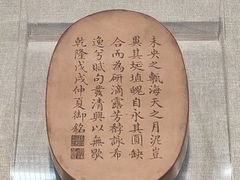 未央之甎海天之月泥豈
異其埏埴魄自永其圓缺
合而為硯滴露芳馡詠希
逸兮賦向叢清興以無歇
乾隆戊戌仲夏御銘